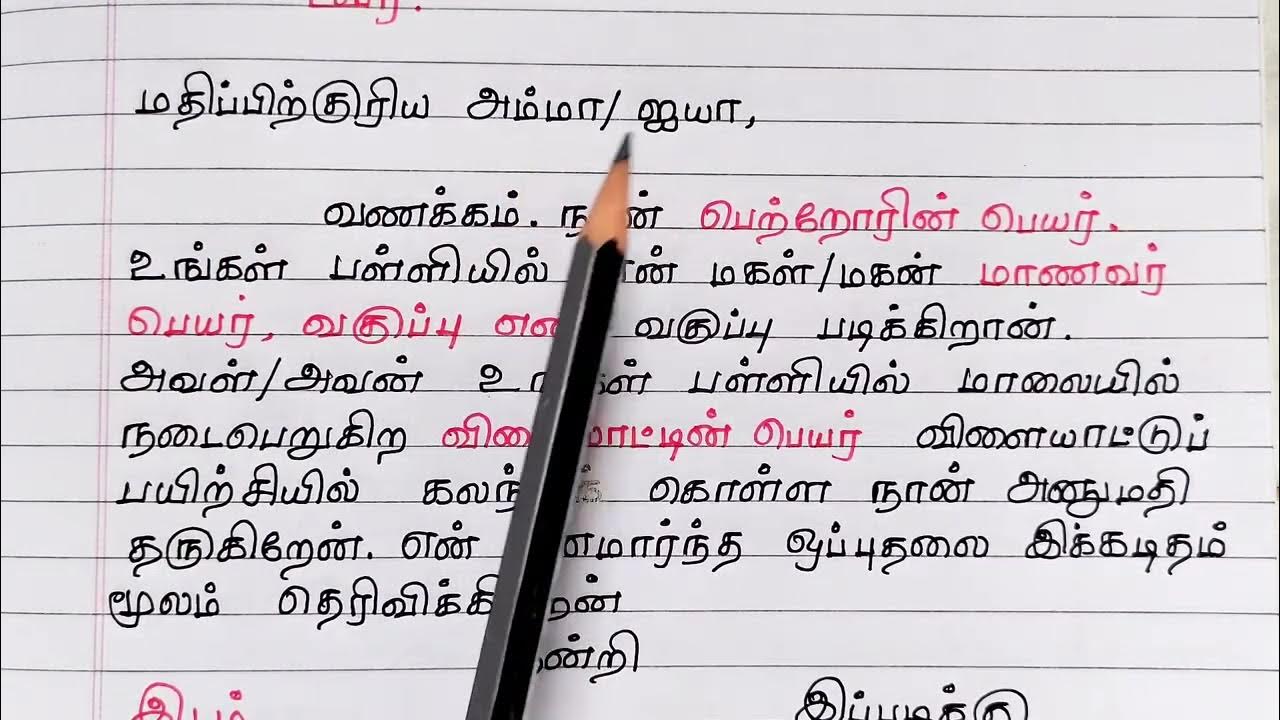 மதிப்பிற்குரிய அம்மா/ ஐயா,
வணக்கம். நான் பெற்றோரின் பெயர்.
உங்கள் பள்ளியில் என் மகள்/மகன் மாணவர்
பெயர், வகுப்பு எண் வகுப்பு படிக்கிறான்.
அவள்/அவன் உங்கள் பள்ளியில் மாலையில்
நடைபெறுகிற விளையாட்டின் பெயர் விளையாட்டுப்
பயிற்சியில் கொள்ள நான் அனுமதி
தருகிறேன். என் ஒப்புதலை இக்கடிதம்
மூலம் தெரிவிக்கிறேன்
நன்றி
இடம் இப்படிக்கு